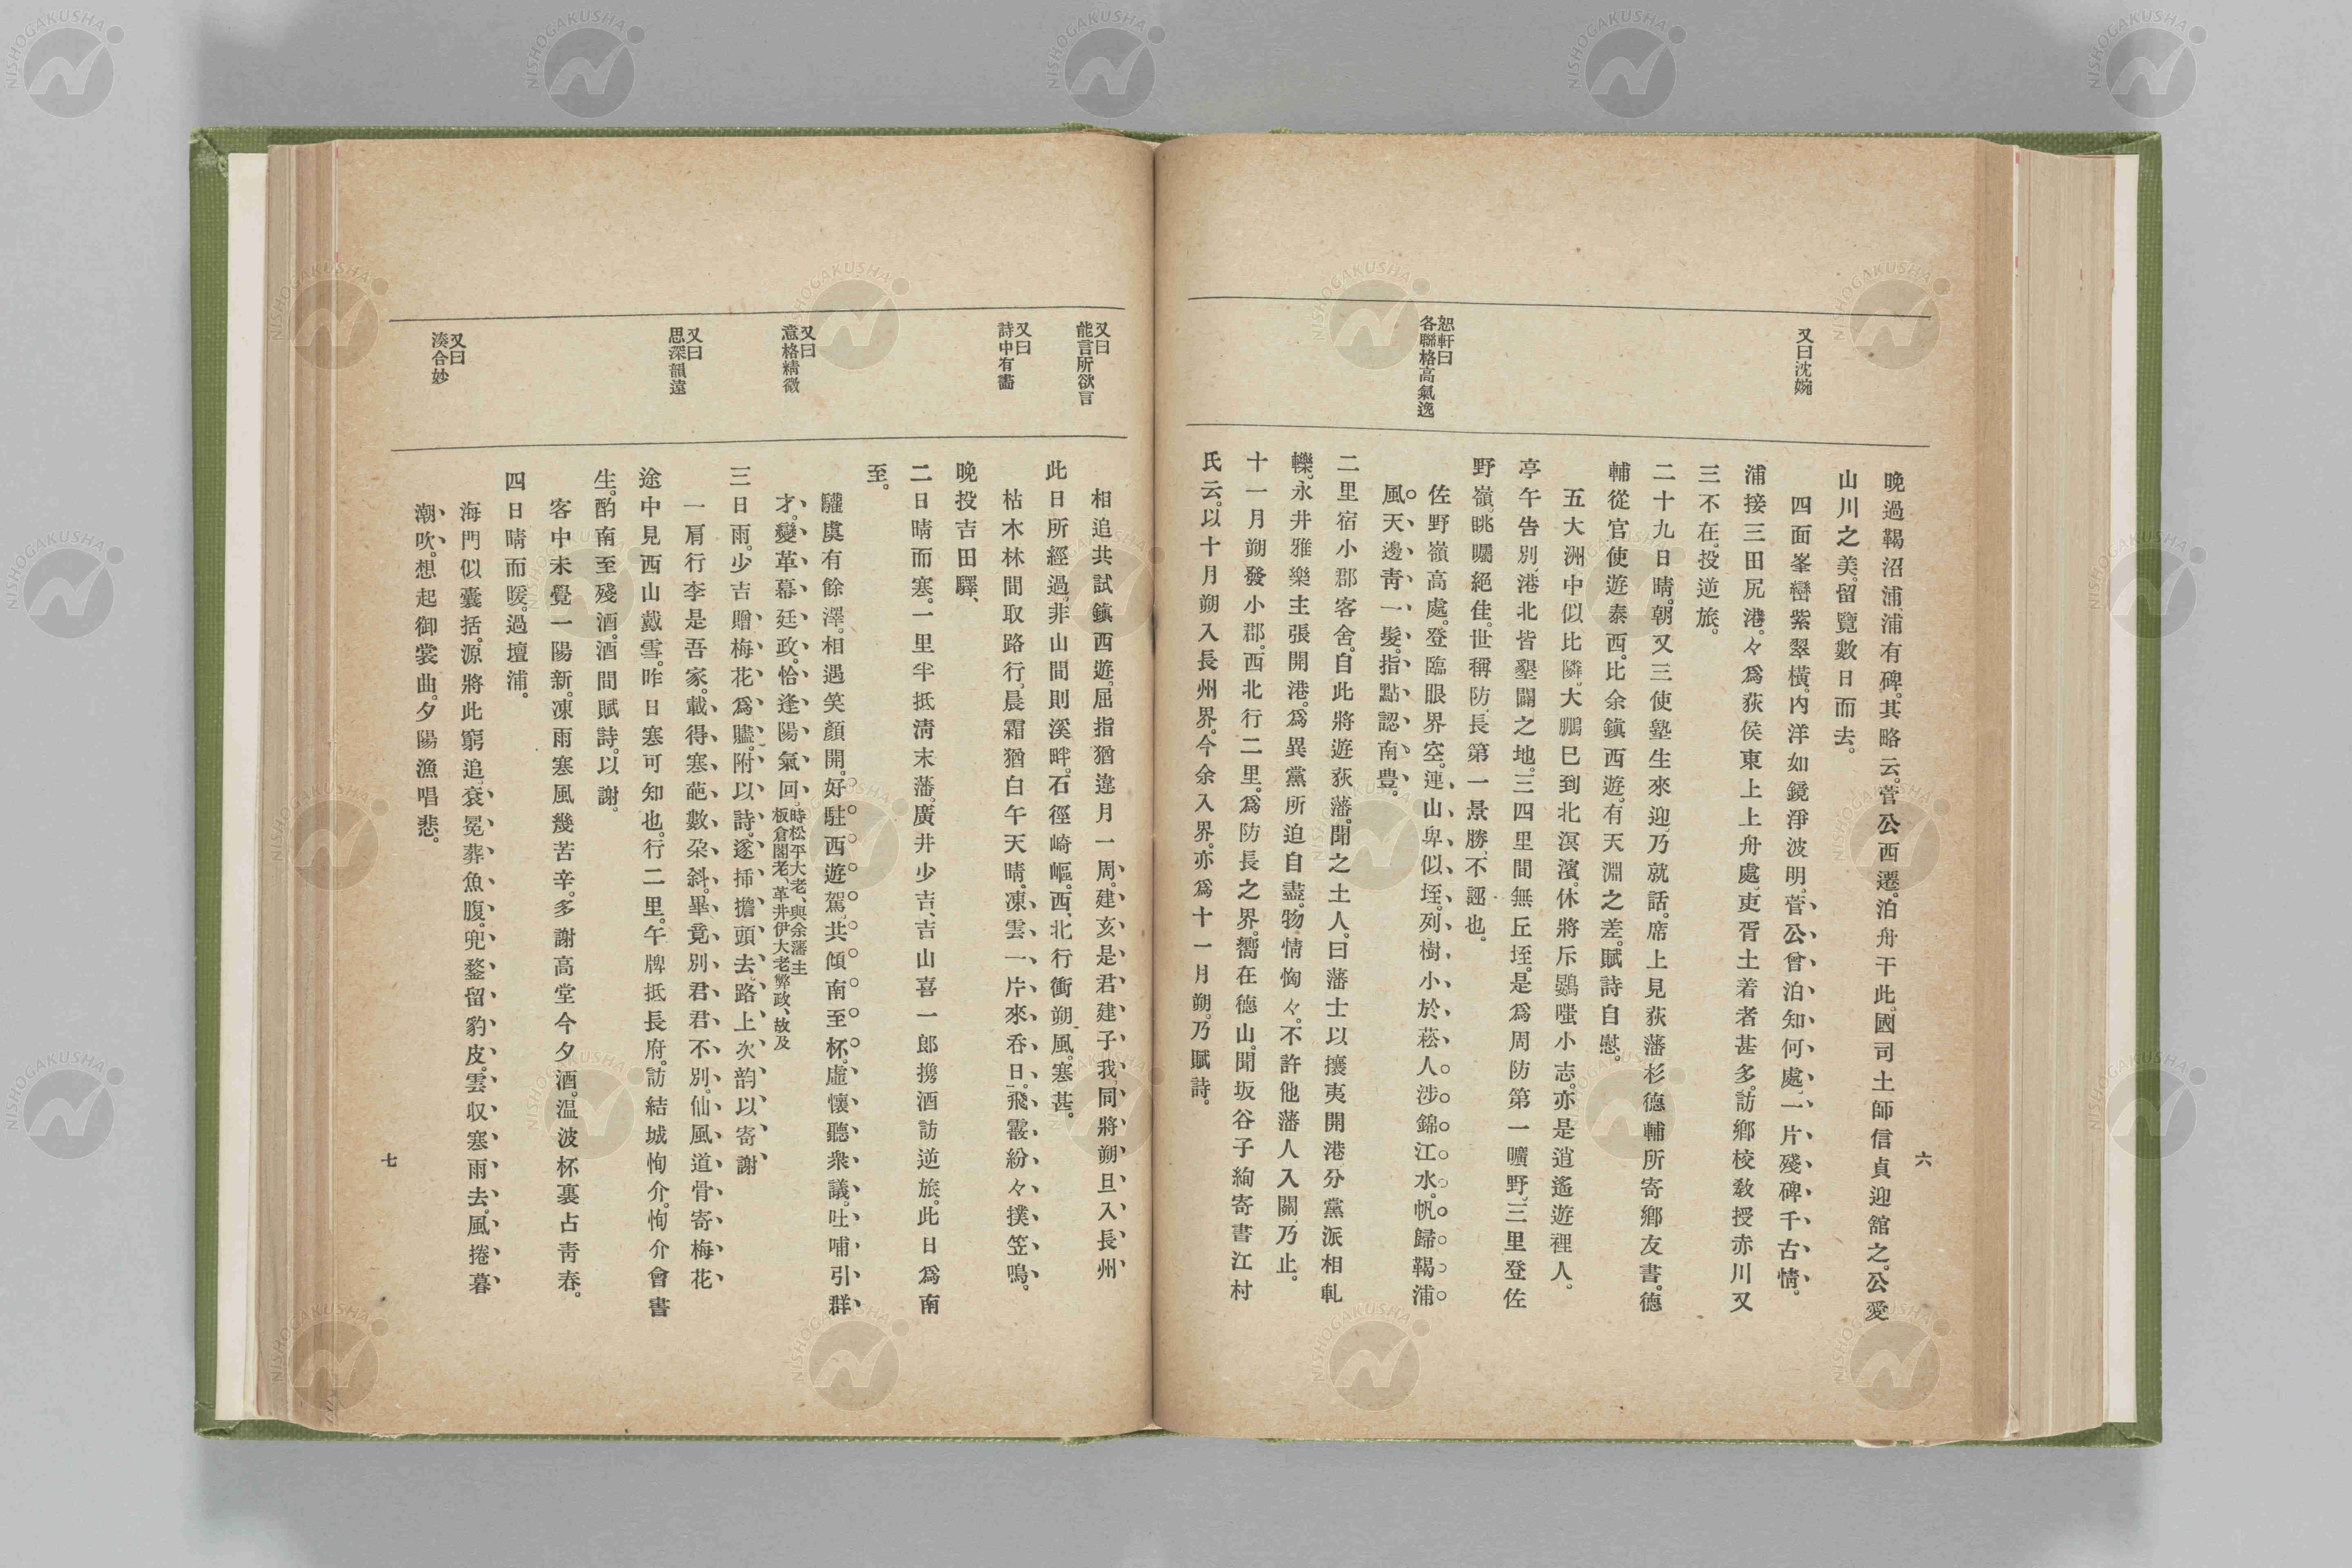 又曰沈婉
恕軒曰
各聯格高氣逸
晚過鞨沼浦、浦有碑。其略云。菅公西遷。泊舟于此。國司土師信貞迎舘之。公愛
山川之美。留覽數日而去。
四面峯巒紫翠橫。內洋如鏡淨波明。菅公曾泊知何處。一片殘碑千古情。
浦接三田尻港。々爲荻侯東上上舟處。吏胥土着者甚多。訪鄉校敎授赤川又
三不在。投逆旅。
二十九日晴。朝又三使塾生來迎、乃就話。席上見荻藩杉德輔所寄鄉友書。德
輔從官使遊泰西。比余鎭西遊。有天淵之差。賦詩自慰。
五大洲中似比隣。大鵬已到北溟濱。休將斥鷃嗤小志。亦是逍遙遊裡人。
亭午告別、港北皆墾闢之地。三四里間無丘垤。是爲周防第一曠野。三里登佐
野嶺。眺矚絕佳。世稱防、長第一景勝、不誣也。
佐野嶺高處。登臨眼界空。連山卑似垤。列樹小於菘。人涉錦江水。帆歸鞨浦
風。天邊靑一髮。指點認南豊。
二里宿小郡客舍。自此將遊荻藩。聞之土人。曰藩士以攘夷開港分黨派相軋
轢。永井雅樂主張開港。爲異黨所迫自盡。物情恟々。不許他藩人入關、乃止。
十一月朔發小郡。西北行二里。爲防長之界。嚮在德山。聞坂谷子絢寄書江村
氏云。以十月朔入長州界。今余入界。亦爲十一月朔。乃賦詩。
六
又曰
能言所欲言
又曰
詩中有畵
又曰
意格精微
又曰
思深韻遠
又曰
湊合妙
相追共試鎭西遊。屈指猶違月一周。建亥是君建子我。同將朔旦入長州
此日所經過。非山間則溪畔。石徑崎嶇。西、北行衝朔風。寒甚。
枯木林間取路行、晨霜猶白午天晴。凍雲一片來呑日。飛霰紛々撲笠鳴。
晚投吉田驛、
二日晴而寒。一里半抵淸末藩。廣井少吉、吉山喜一郎携酒訪逆旅。此日爲南
至。
驩虞有餘澤。相遇笑顏開。好駐西遊駕。共傾南至杯。虛懷聽衆議。吐哺引群
才。變革幕廷政。恰逢陽氣回。時松平大老、與余藩主板倉閣老、革井伊大老弊政、故及
三日雨。少吉贈梅花爲贐。附以詩。遂挿擔頭去。路上次韵以寄謝
一肩行李是吾家。載得寒葩數朶斜。畢竟別君君不別。仙風道骨寄梅花
途中見西山戴雪。昨日寒可知也。行二里。午牌抵長府。訪結城恂介。恂介會書
生。酌南至殘酒。酒間賦詩。以謝。
客中未覺一陽新。凍雨寒風幾苦辛。多謝高堂今夕酒。温波杯裏占靑春。
四日晴而暖。過壇浦。
海門似囊括。源將此窮追。袞冕葬魚腹。兜鍪留豹皮。雲収寒雨去。風捲暮
潮吹。想起御裳曲。夕陽漁唱悲。
七